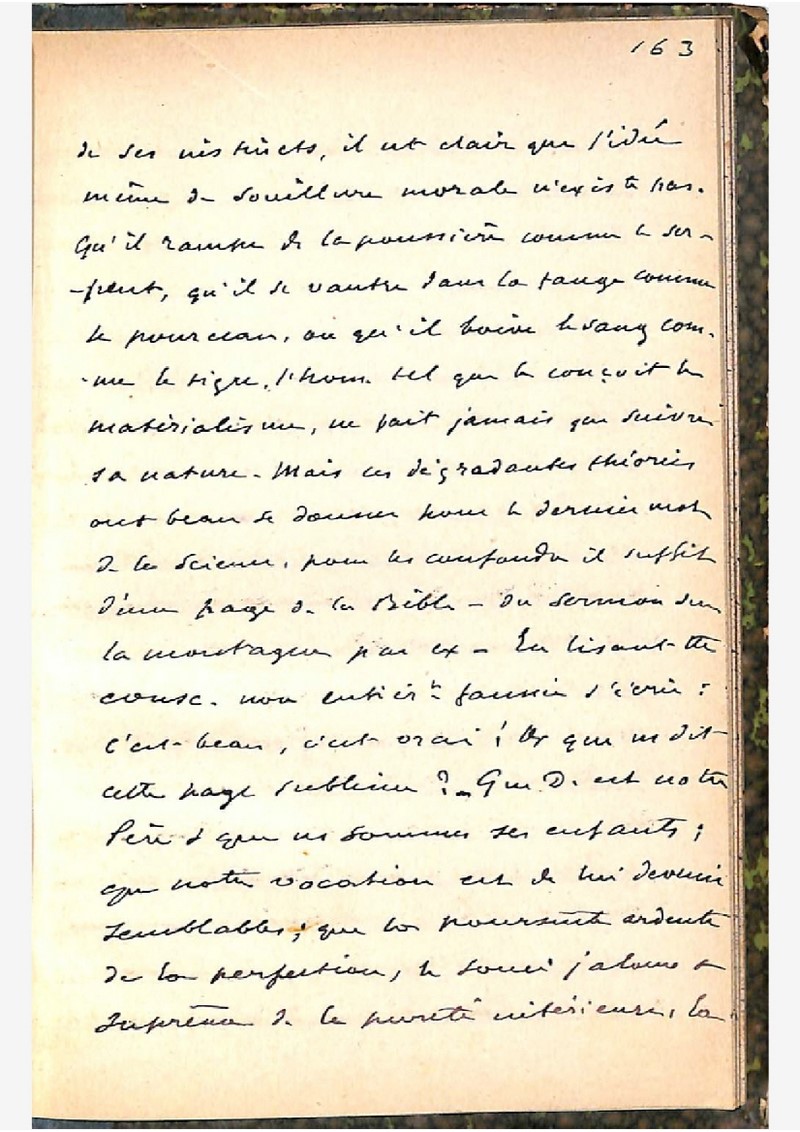 163
de ses instincts, il est clair que l'idée
même de souillure morale n'existe pas.
Qu'il rampe ds la poussière comme le ser-
-pent, qu'il se vautre dans la fange comme
le pourceau, ou qu'il boive le sang com-
-me le tigre, l'hom. tel que le conçoit le
matérialisme, ne fait jamais que suivre
sa nature. Mais ces dégradantes théories
ont beau se donner pour le dernier mot
de la science, pour les confondre il suffit
d'une page de la Bible – du sermon sur
la montagne par ex – En lisant
consc. non entièrt faussée s'écrie :
c'est beau, c'est vrai ! Or que ns dit
cette page sublime ? – Que D. est notre
Père & que ns sommes ses enfants ;
que notre vocation est de lui devenir
semblables ; que la poursuite ardente
de la perfection, le souci jaloux &
suprême de la pureté intérieure, la